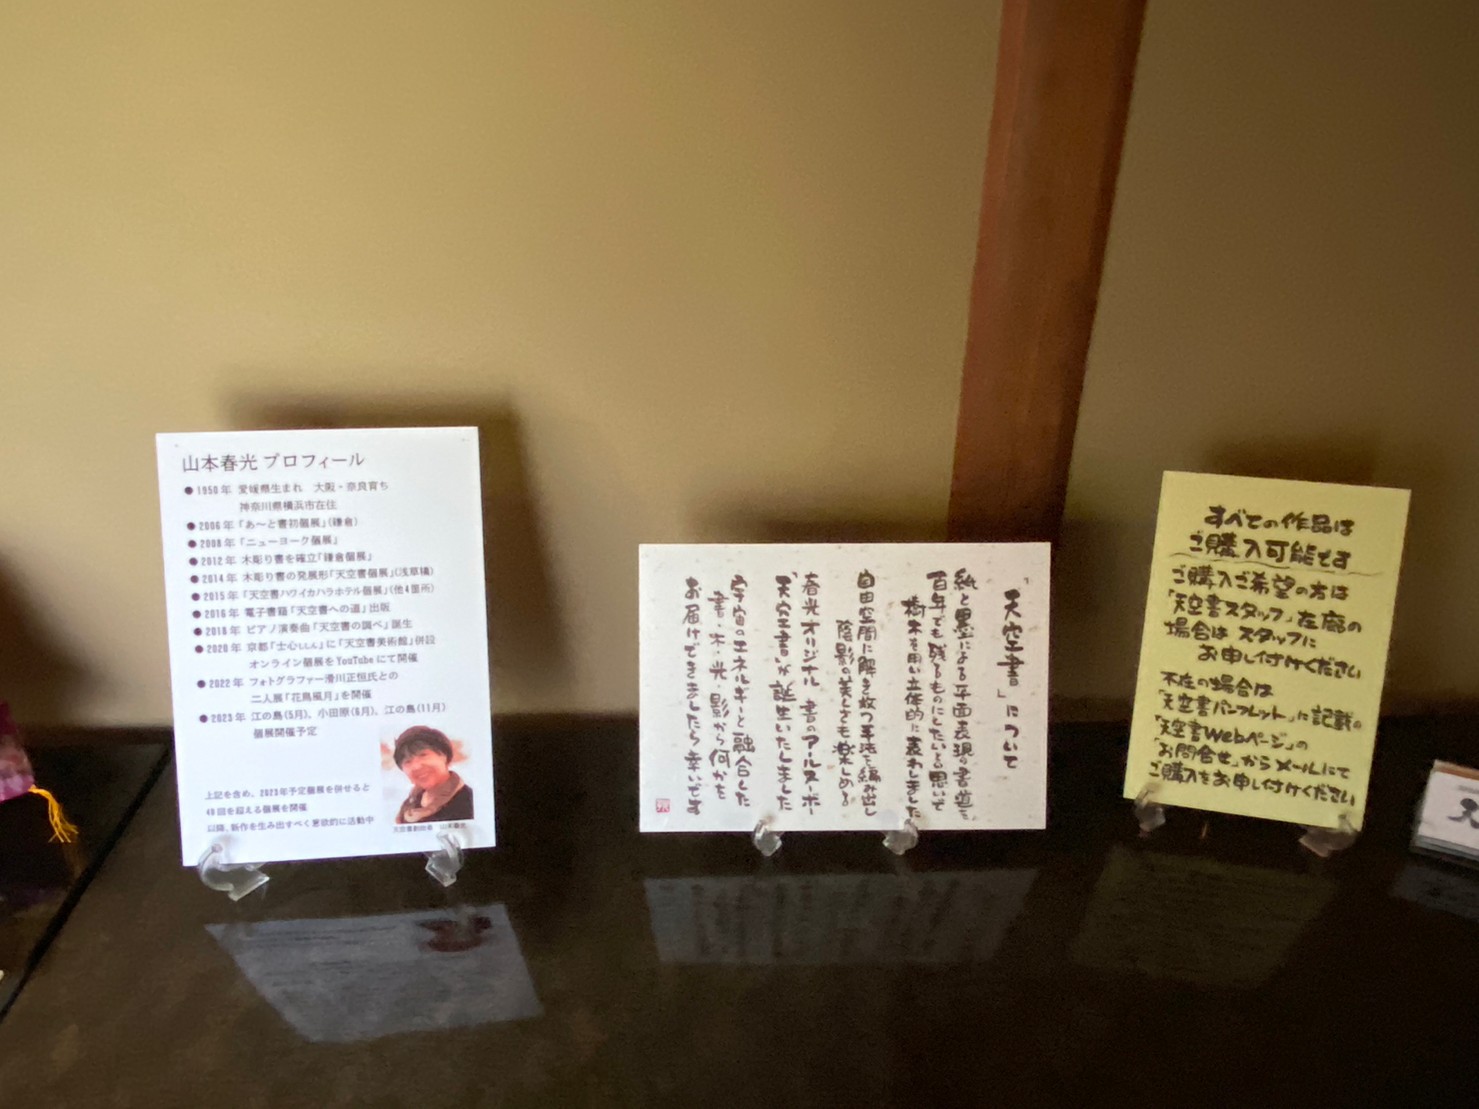 山本春光 プロフィール
●1950年 愛媛県生まれ 大阪・奈良育ち
神奈川県横浜市在住
●2006年「あ～と書初個展」(鎌倉)
●2008年「ニューヨーク個展」
●2012年 木彫り書を確立「鎌倉個展」
●2014年 木彫り書の発展形「天空書個展」(浅草橋)
●2015年「天空書ハワイカハラホテル個展」(他4箇所)
●2016年 電子書籍「天空書への道」出版
●2018年 ピアノ演奏曲「天空書の調べ」誕生
●2020年 京都「士心ししん」に「天空書美術館」併設
オンライン個展をYouTubeにて開催
●2022年 フォトグラファー滑川正恒氏との
二人展「花鳥風月」を開催
●2023年 江の島(5月)、小田原(6月)、江の島(11月)
個展開催予定
上記を含め、2023年予定個展を併せると
40回を超える個展を開催
以降、新作を生み出すべく意欲的に活動中
「天空書」について
紙と墨による平面表現の書道を
百年でも残るものにしたいと思いて
樹木を用い立体的に表わしました
自由空間に解き放つ手法を編み出し
陰影の美しさも楽しめる
春光オリジナル 書のアールヌーボー
「天空書」が誕生いたしました
宇宙のエネルギーと融合した
書・木・光・影から何かを
お届けできましたら幸いです
すべての作品は
ご購入可能です
ご購入ご希望の方は
「天空書スタッフ」在廊の
場合は スタッフに
お申し付けください
不在の場合は
「天空書パンフレット」に記載の
「天空書Webページ」の
「お問合せ」からメールにて
ご購入をお申し付けください